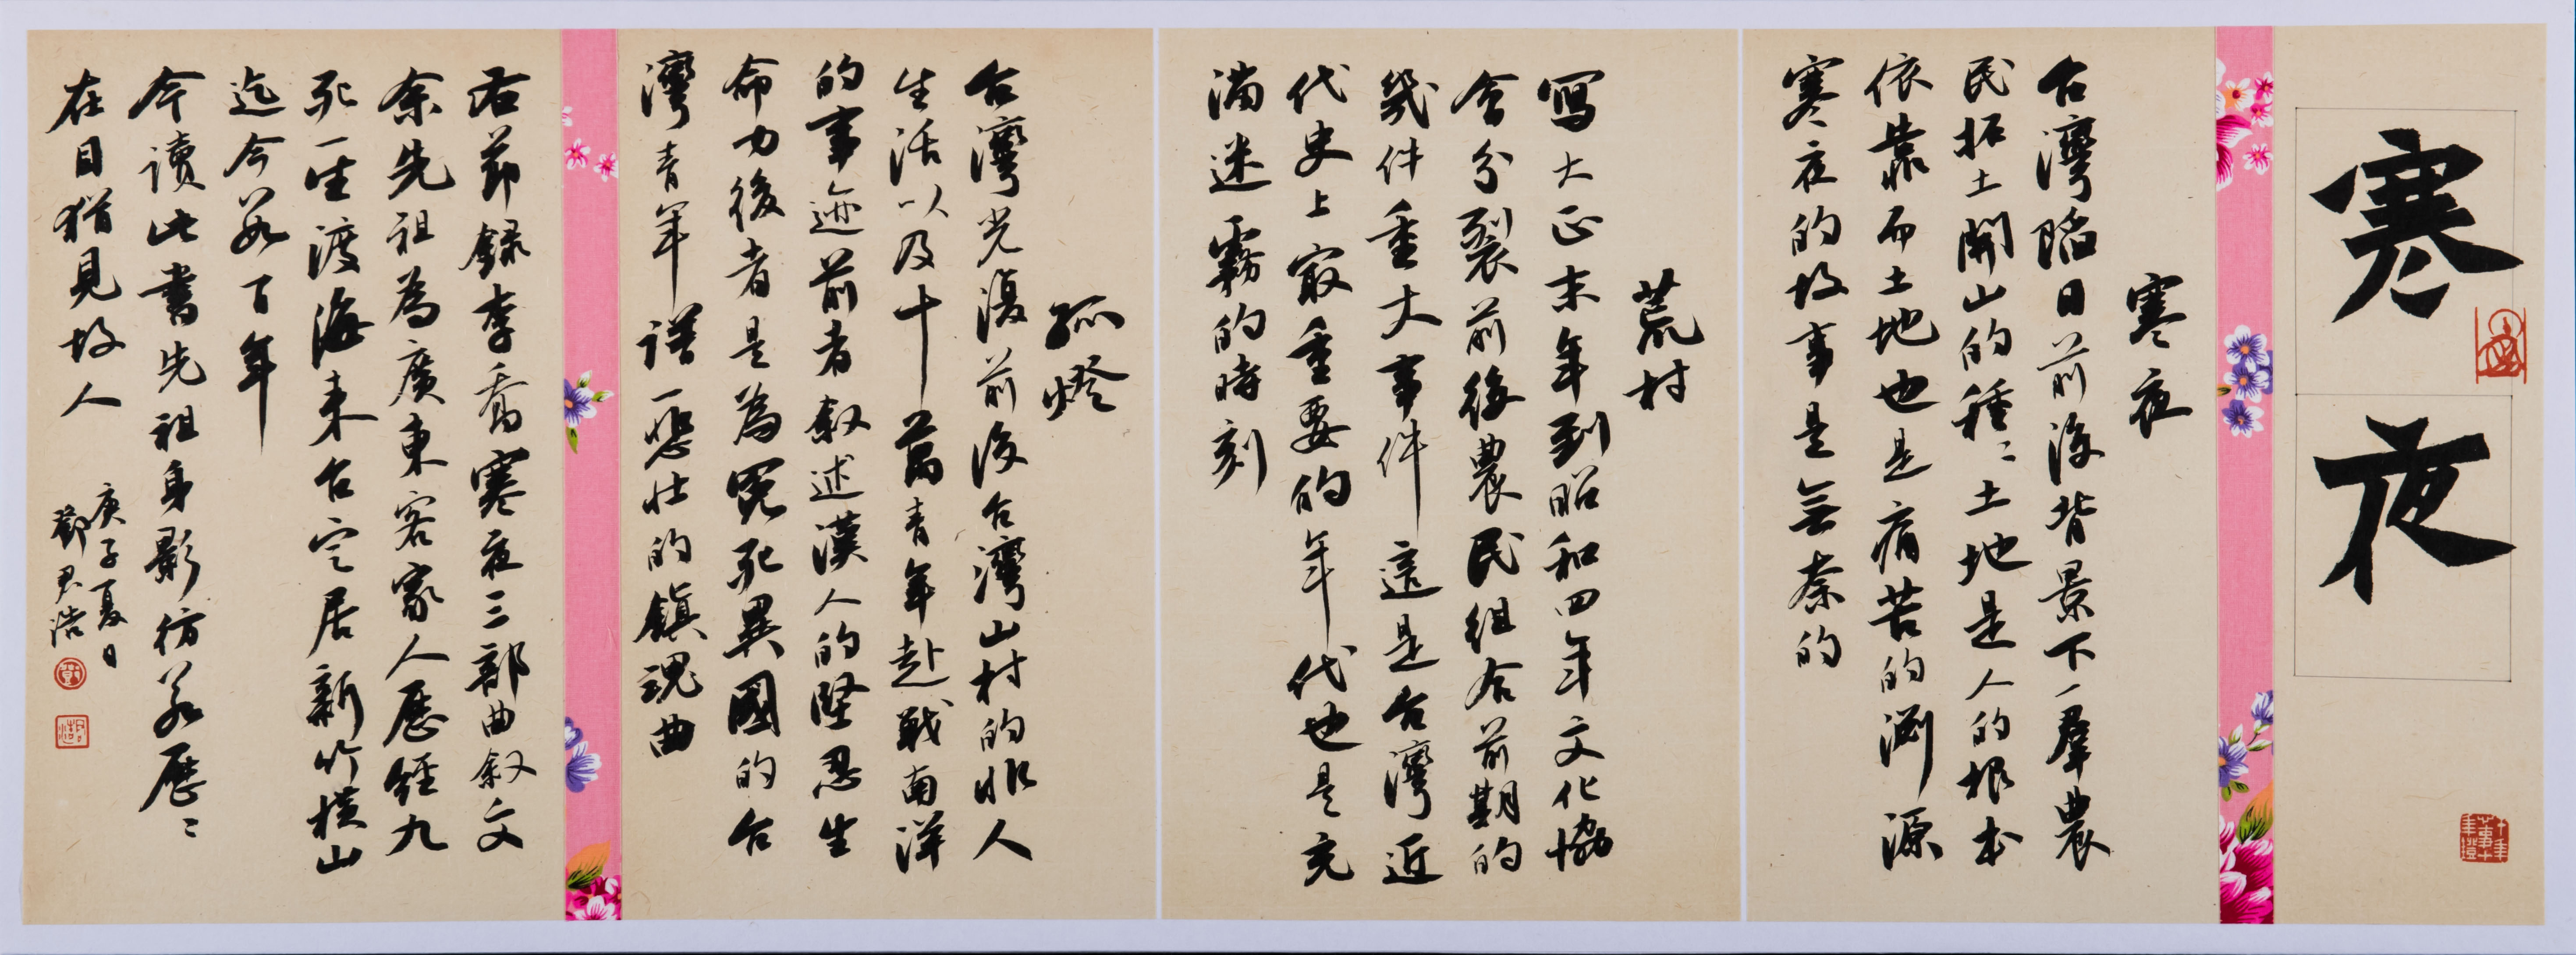 寒夜
寒夜
台灣陷日前後背景下一群農
民拓土開山的種種土地是人的根本
依靠而土地也是痛苦的淵源
寒夜的故事是無奈的
荒村
寫大正末年到昭和四年文化協
會分裂前後農民組合前期的
幾件重大事件這是台灣近
代史上最重要的年代也是充
滿迷霧的時刻
孤燈
台灣光復前後台灣山村的悲人
生活以及十萬青年赴戰南洋
的事迹前者敘述漢人的堅忍生
命力後者是為冤死異國的台
灣青年譜一悲壯的鎮魂曲
右節錄李喬寒夜三部曲叙文
余先祖為廣東客家人歷經九
死一生渡海來台定居新竹橫山
迄今若百年
今讀此書先祖身影彷若歷歷
在目猶見故人
庚子夏日
鄧君浩